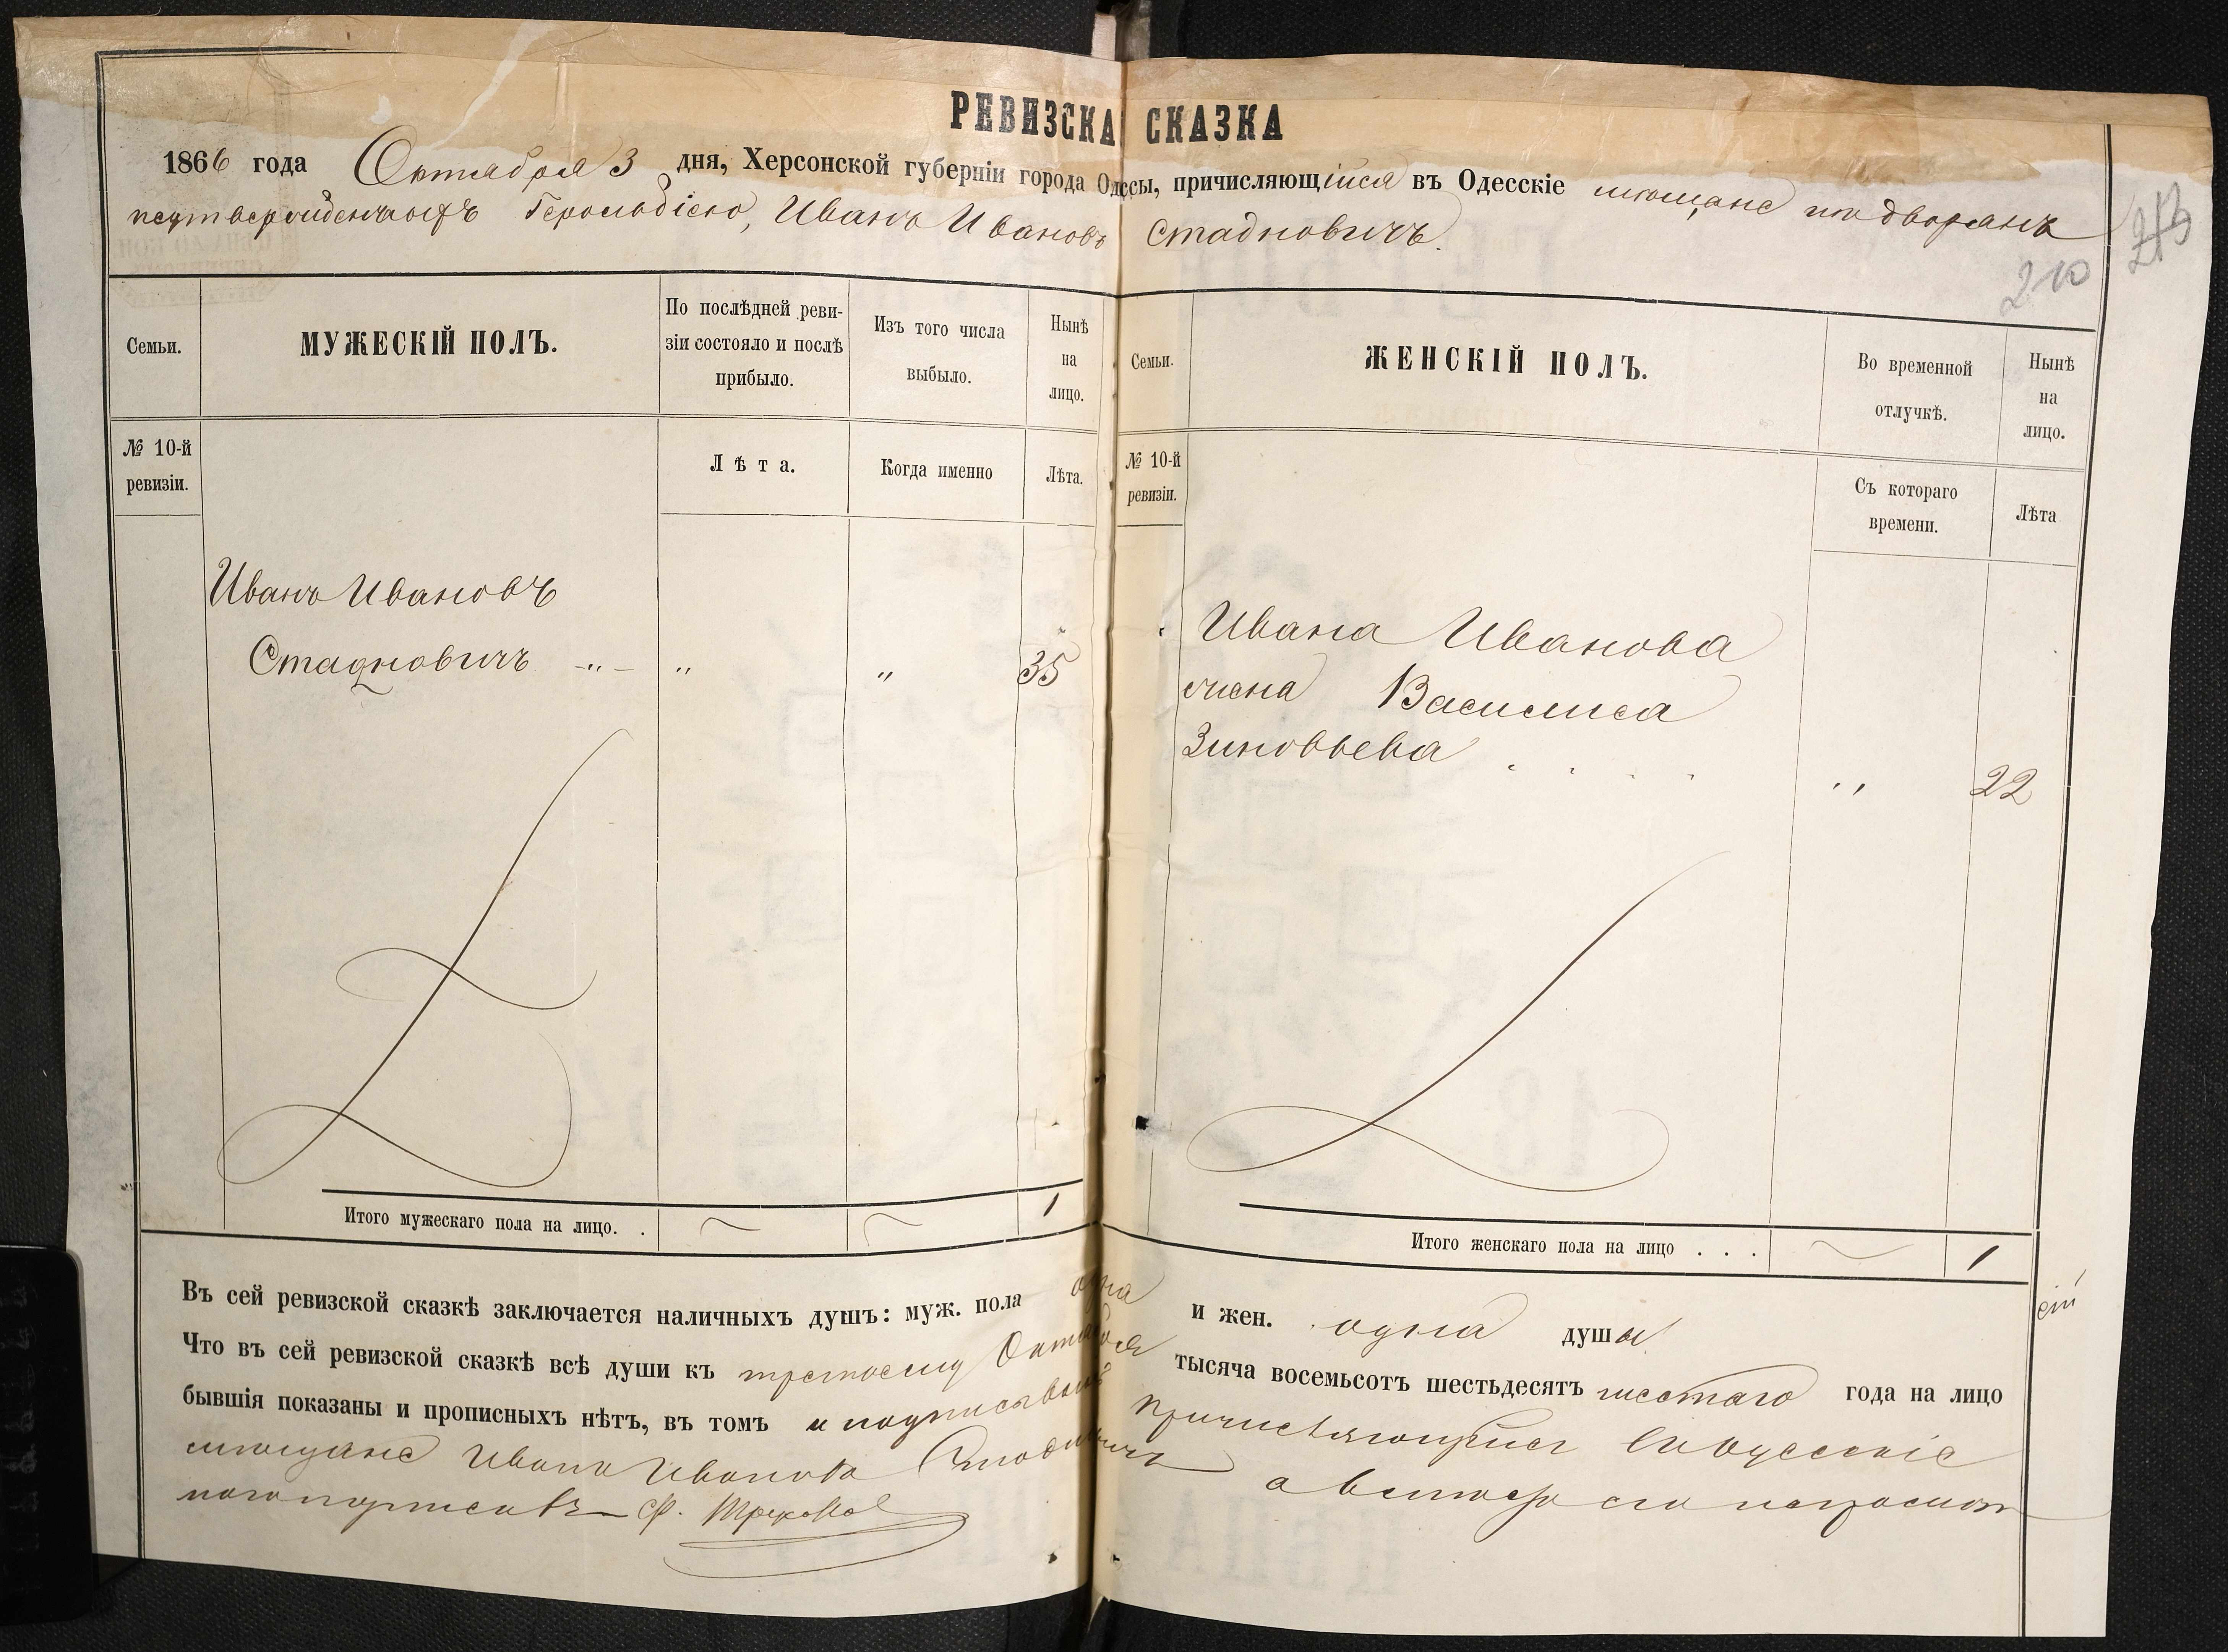 РЕВИЗСКА СКАЗКА
1866 года Октября 3 дня, Херсонской губерніи города Одессы, причисляющійся въ Одесскіе мѣщане изъ дворянъ
неутвержденныхъ Герольдіею, Иванъ Ивановъ Стадновичъ.
213
210
Семьи.
МУЖЕСКІЙ ПОЛЪ.
По послѣдней реви-
зіи состояло и послѣ
прибыло.
Изъ того числа
выбыло.
Нынѣ
на
лицо.
Семьи.
ЖЕНСКІЙ ПОЛЪ.
Во временной
отлучкѣ.
Нынѣ
на
лицо.
№ 10-й
ревизіи.
Лѣта.
Когда именно
Лѣта.
№ 10-й
ревизіи.
Съ котораго
времени.
Лѣта
Иванъ Ивановъ
Стадновичъ -„- „ „ 35
Ивана Иванова
жена Василиса
Зиновьева . . . . „ 22
Итого мужескаго пола на лицо. . 1
Итого женскаго пола на лицо . . . 1
Въ сей ревизской сказкѣ заключается наличныхъ душъ: муж. пола одна и жен. одна душа.
Что въ сей ревизской сказкѣ всѣ души къ третьему Октября тысяча восемьсотъ шестьдесятъ шестаго года на лицо
бывшія показаны и прописныхъ нѣтъ, въ томъ и подписалъ причисляющійся въ Одесскіе
мѣщане Иванъ Ивановъ Стадновичъ а вмѣсто его неграмот
наго подписалъ Ф.